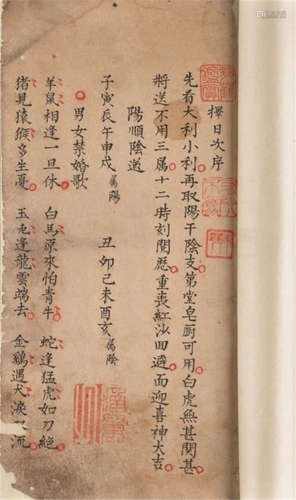 擇日次序
先看大利小利再取陽干陰支第堂皂廚可用白虎無甚関甚
將送不用三属十二時刻関重喪紅沙囬避面迎喜神大吉
陽順陰送
子寅辰午申戌属陽 丑卯己未酉亥属陰
男女禁婚歌
羊鼠相逢一旦休 白馬原來怕青牛 蛇逢猛虎如刀絕
猪見猿猴多生憂 玉兔逢龍雲端去 金鷄遇犬淚双流